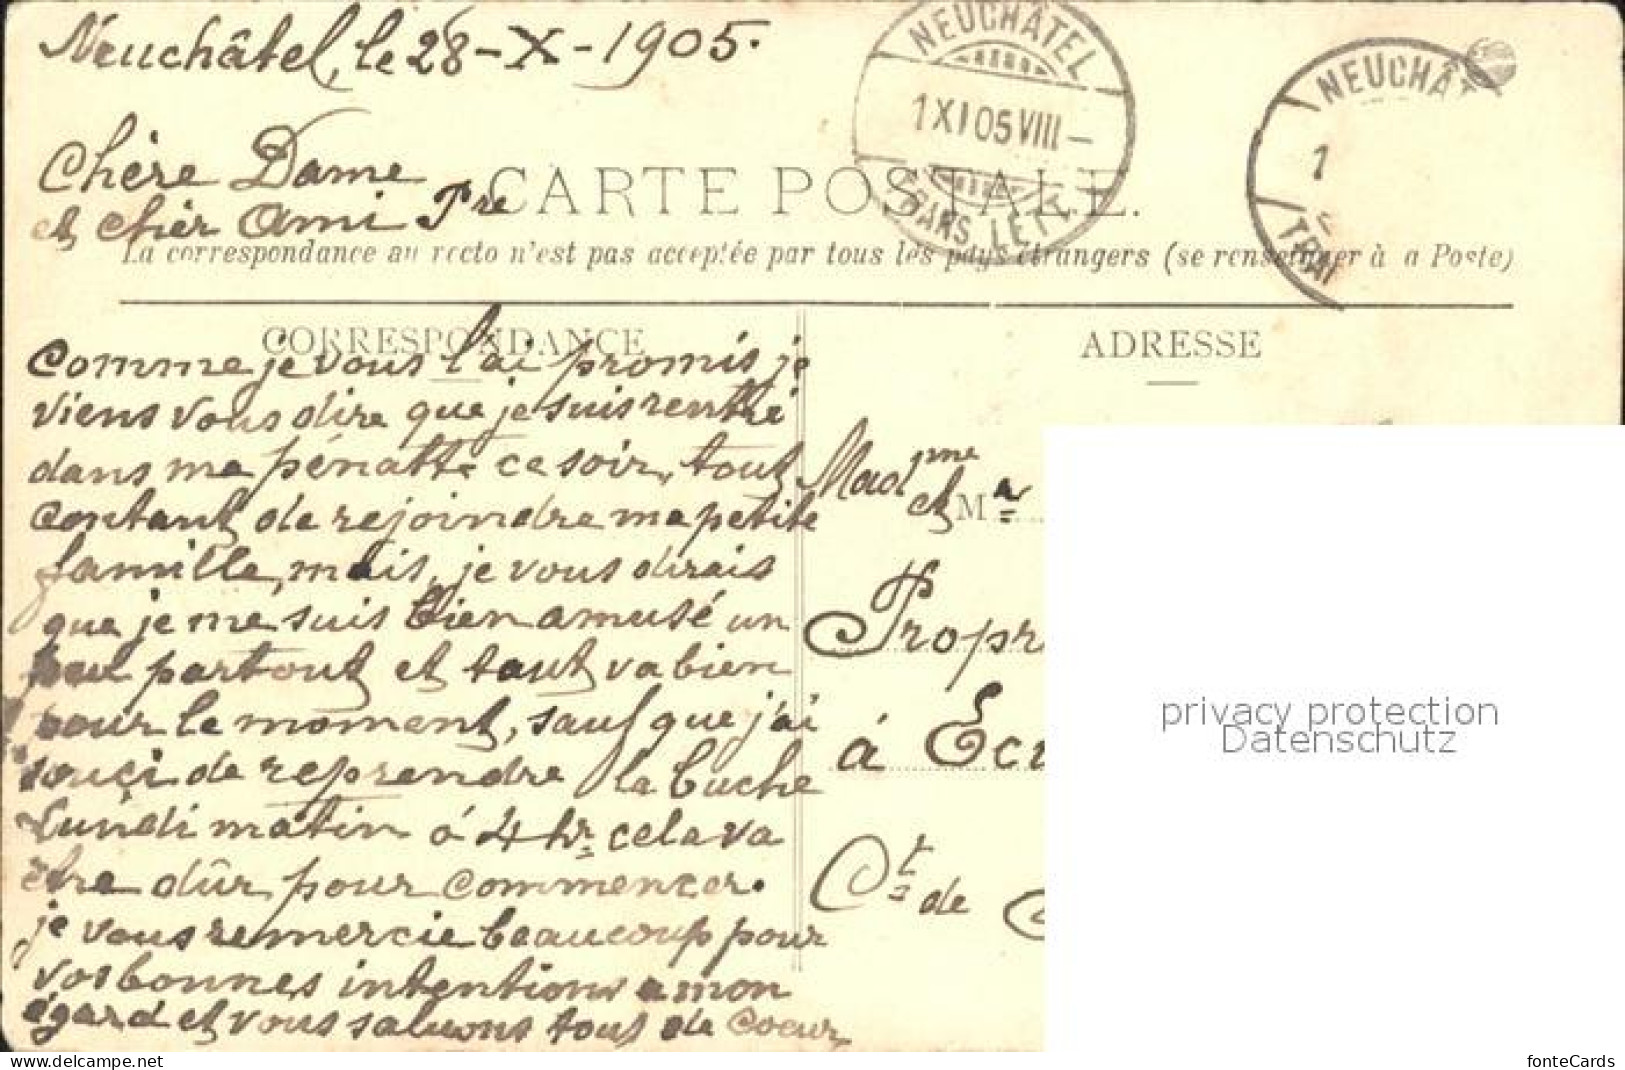 Neuchâtel, le 28-X-1905.
NEUCHÂTEL
1 XI 05 VIII -
TRANS. LETTR.
NEUCHÂT
1
TRAN
Chère Dame
et chèr Ami Pre
CARTE POSTALE.
La correspondance au recto n'est pas acceptée par tous les pays étrangers (se renseigner à a Poste)
CORRESPONDANCE
Comme je vous l'ai promis je
viens vous dire que je suis rentré
dans ma pénatte ce soir, tout
contant de rejoindre ma petite
famille, mais, je vous dirais
que je me suis bien amusé un
peu partout et tout va bien
pour le moment, sauf que j'ai
souçi de reprendre la buche
Lundi matin à 4 hr. cela va
être dûr pour commencer.
je vous remercie beaucoup pour
vos bonnes intentions a mon
égard et vous saluons tous de coeur
ADRESSE
Madme
et Mr
Propr
á Ecu
Ct. de
privacy protection
Datenschutz
fonteCards